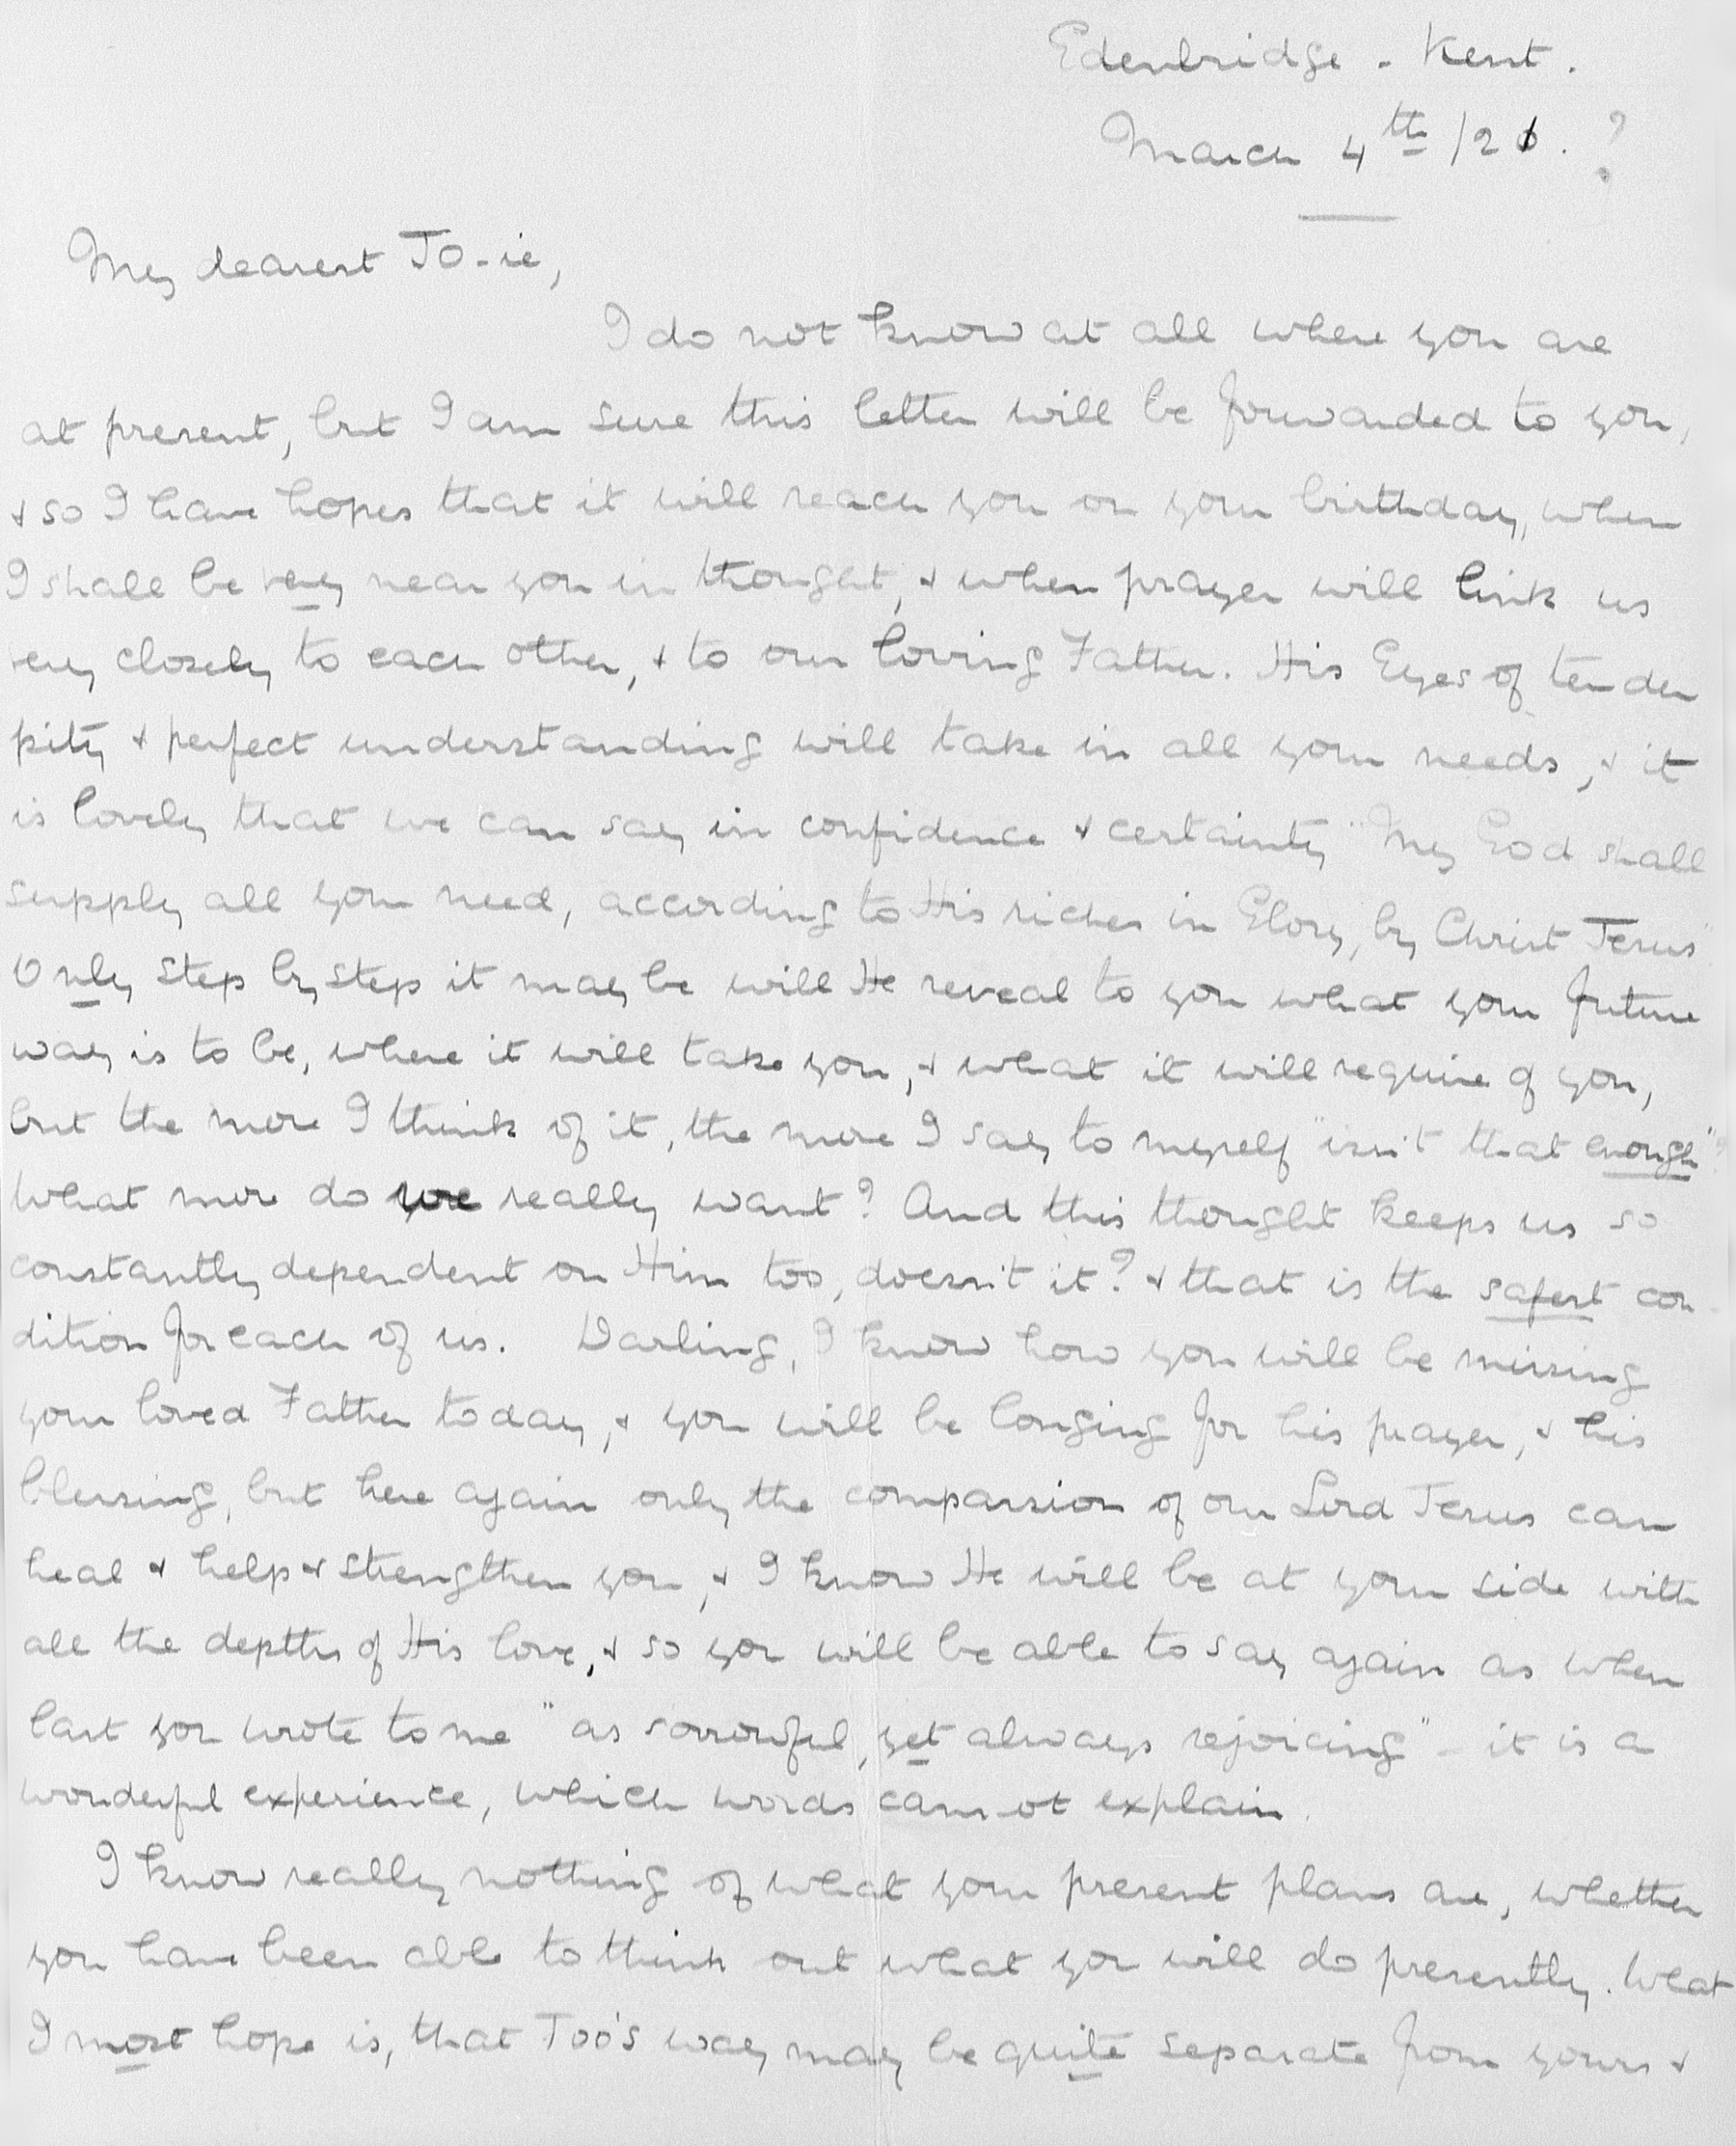 Edenbridge - Kent.
March 4th /21. ?
My dearest JO-ie,
I do not know at all where you are
at present, but I am sure this letter will be forwarded to you,
& so I have hopes that it will reach you on your birthday, when
I shall be very near you in thought, & when prayer will link us
very closely to each other, & to our loving Father. His Eyes of tender
pity & perfect understanding will take in all your needs, & it
is lovely that we can say in confidence & certainty "My God shall
supply all your need, according to His riches in Glory, by Christ Jesus"
Only step by step it may be will He reveal to you what your future
way is to be, where it will take you, & what it will require of you,
but the more I think of it, the more I say to myself "isn't that enough"?
What more do we really want? And this thought keeps us so
constantly dependent on Him too, doesn't it? & that is the safest con-
dition for each of us. Darling, I know how you will be missing
your loved Father today, & you will be longing for his prayer, & his
blessing, but here again only the compassion of our Lord Jesus can
heal & help & strengthen you, & I know He will be at your side with
all the depths of His love, & so you will be able to say again as when
last you wrote to me "as sorrowful, yet always rejoicing" - it is a
wonderful experience, which words cannot explain.
I know really nothing of what your present plans are, whether
you have been able to think out what you will do presently. What
I most hope is, that Too's way may be quite separate from yours &